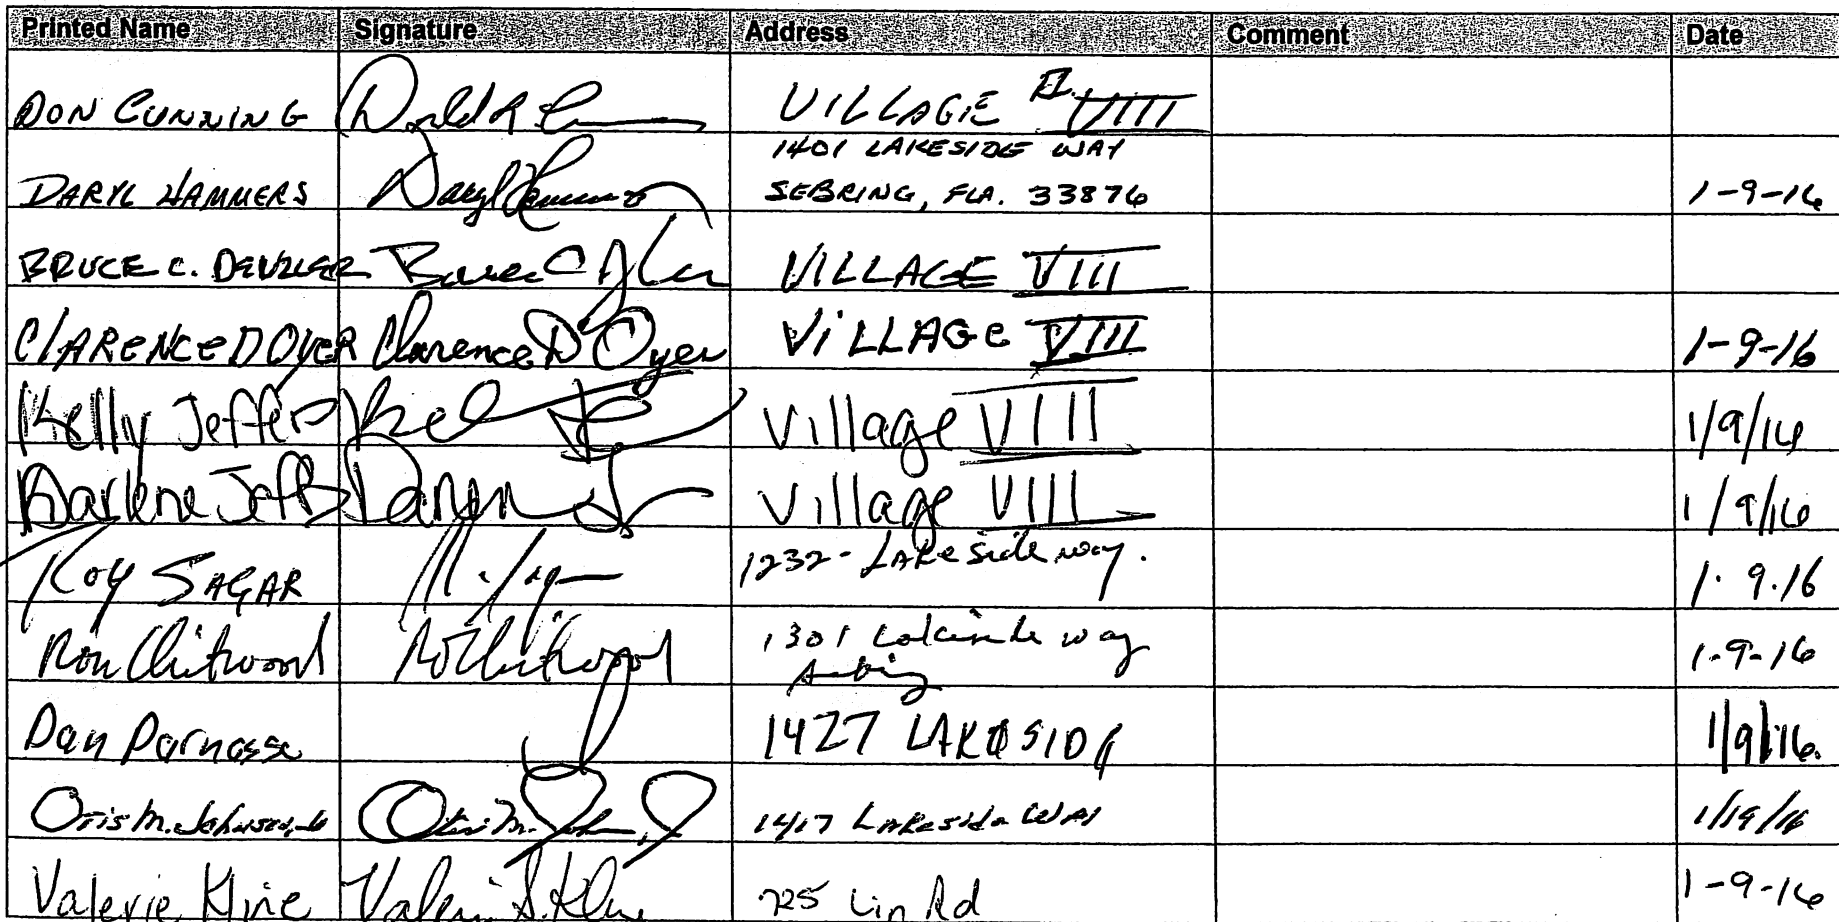 Printed Name Signature Address Comment Date
DON CUNNING VILLAGE VIII
DARYL HAMMERS Daryl Hammers 1401 LAKESIDE WAY
SEBRING, FLA. 33876 1-9-16
BRUCE C. Bruce C VILLAGE VIII
CLARENCE D OYER Clarence D Oyer VILLAGE VIII 1-9-16
Kelly Jeffers Village VIII 1/9/16
Darlene Jeffers Village VIII 1/9/16
Roy SAGAR 1232 - LAKeside way. 1.9.16
Ron Chitwood Chitwood 1301 Lakeside way 1-9-16
Dan 1427 LAKESIDE 1/9/16.
Otis M. Johnson, Jr Otis M. 1417 Lakeside WAY
Valerie Kline Valerie S. Kline 725 Rd 1-9-16